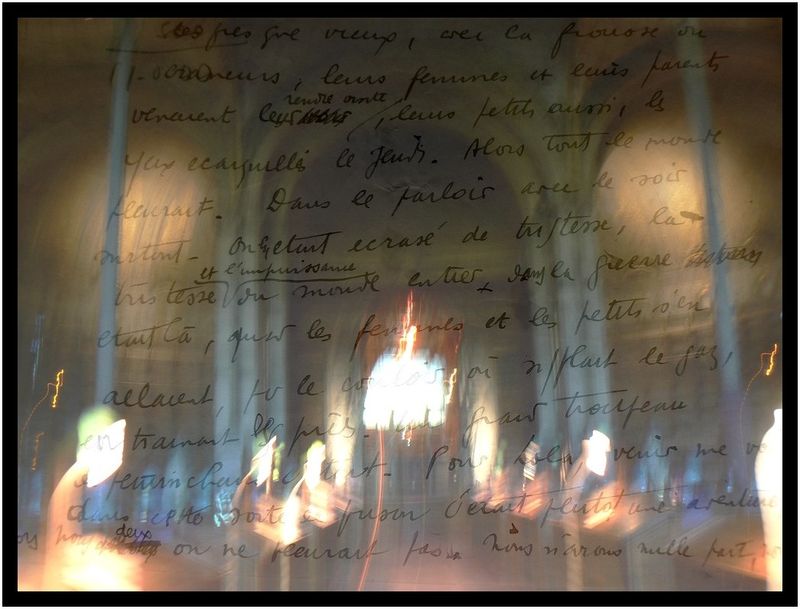 presque vieux, avec la frousse ou
, leurs femmes et leurs parents
venaient rendre visite, leurs petits aussi, les
yeux ecarquillés le jeudi. Alors tout le monde
pleurait. Dans le parloir avec le soir
surtout. on etait ecrasé de tristesse, la
tristesse et l'impuissance du monde entier dans la guerre
etait là, quand les femmes et les petits s'en
allaient, par le couloir où sifflait le gaz,
en trainant les pieds. Un grand troupeau
. Pour Lola, venir me
dans cette sorte de prison c'etait plutôt une aventure
nous deux on ne pleurait pas. Nous n'avions nulle part,